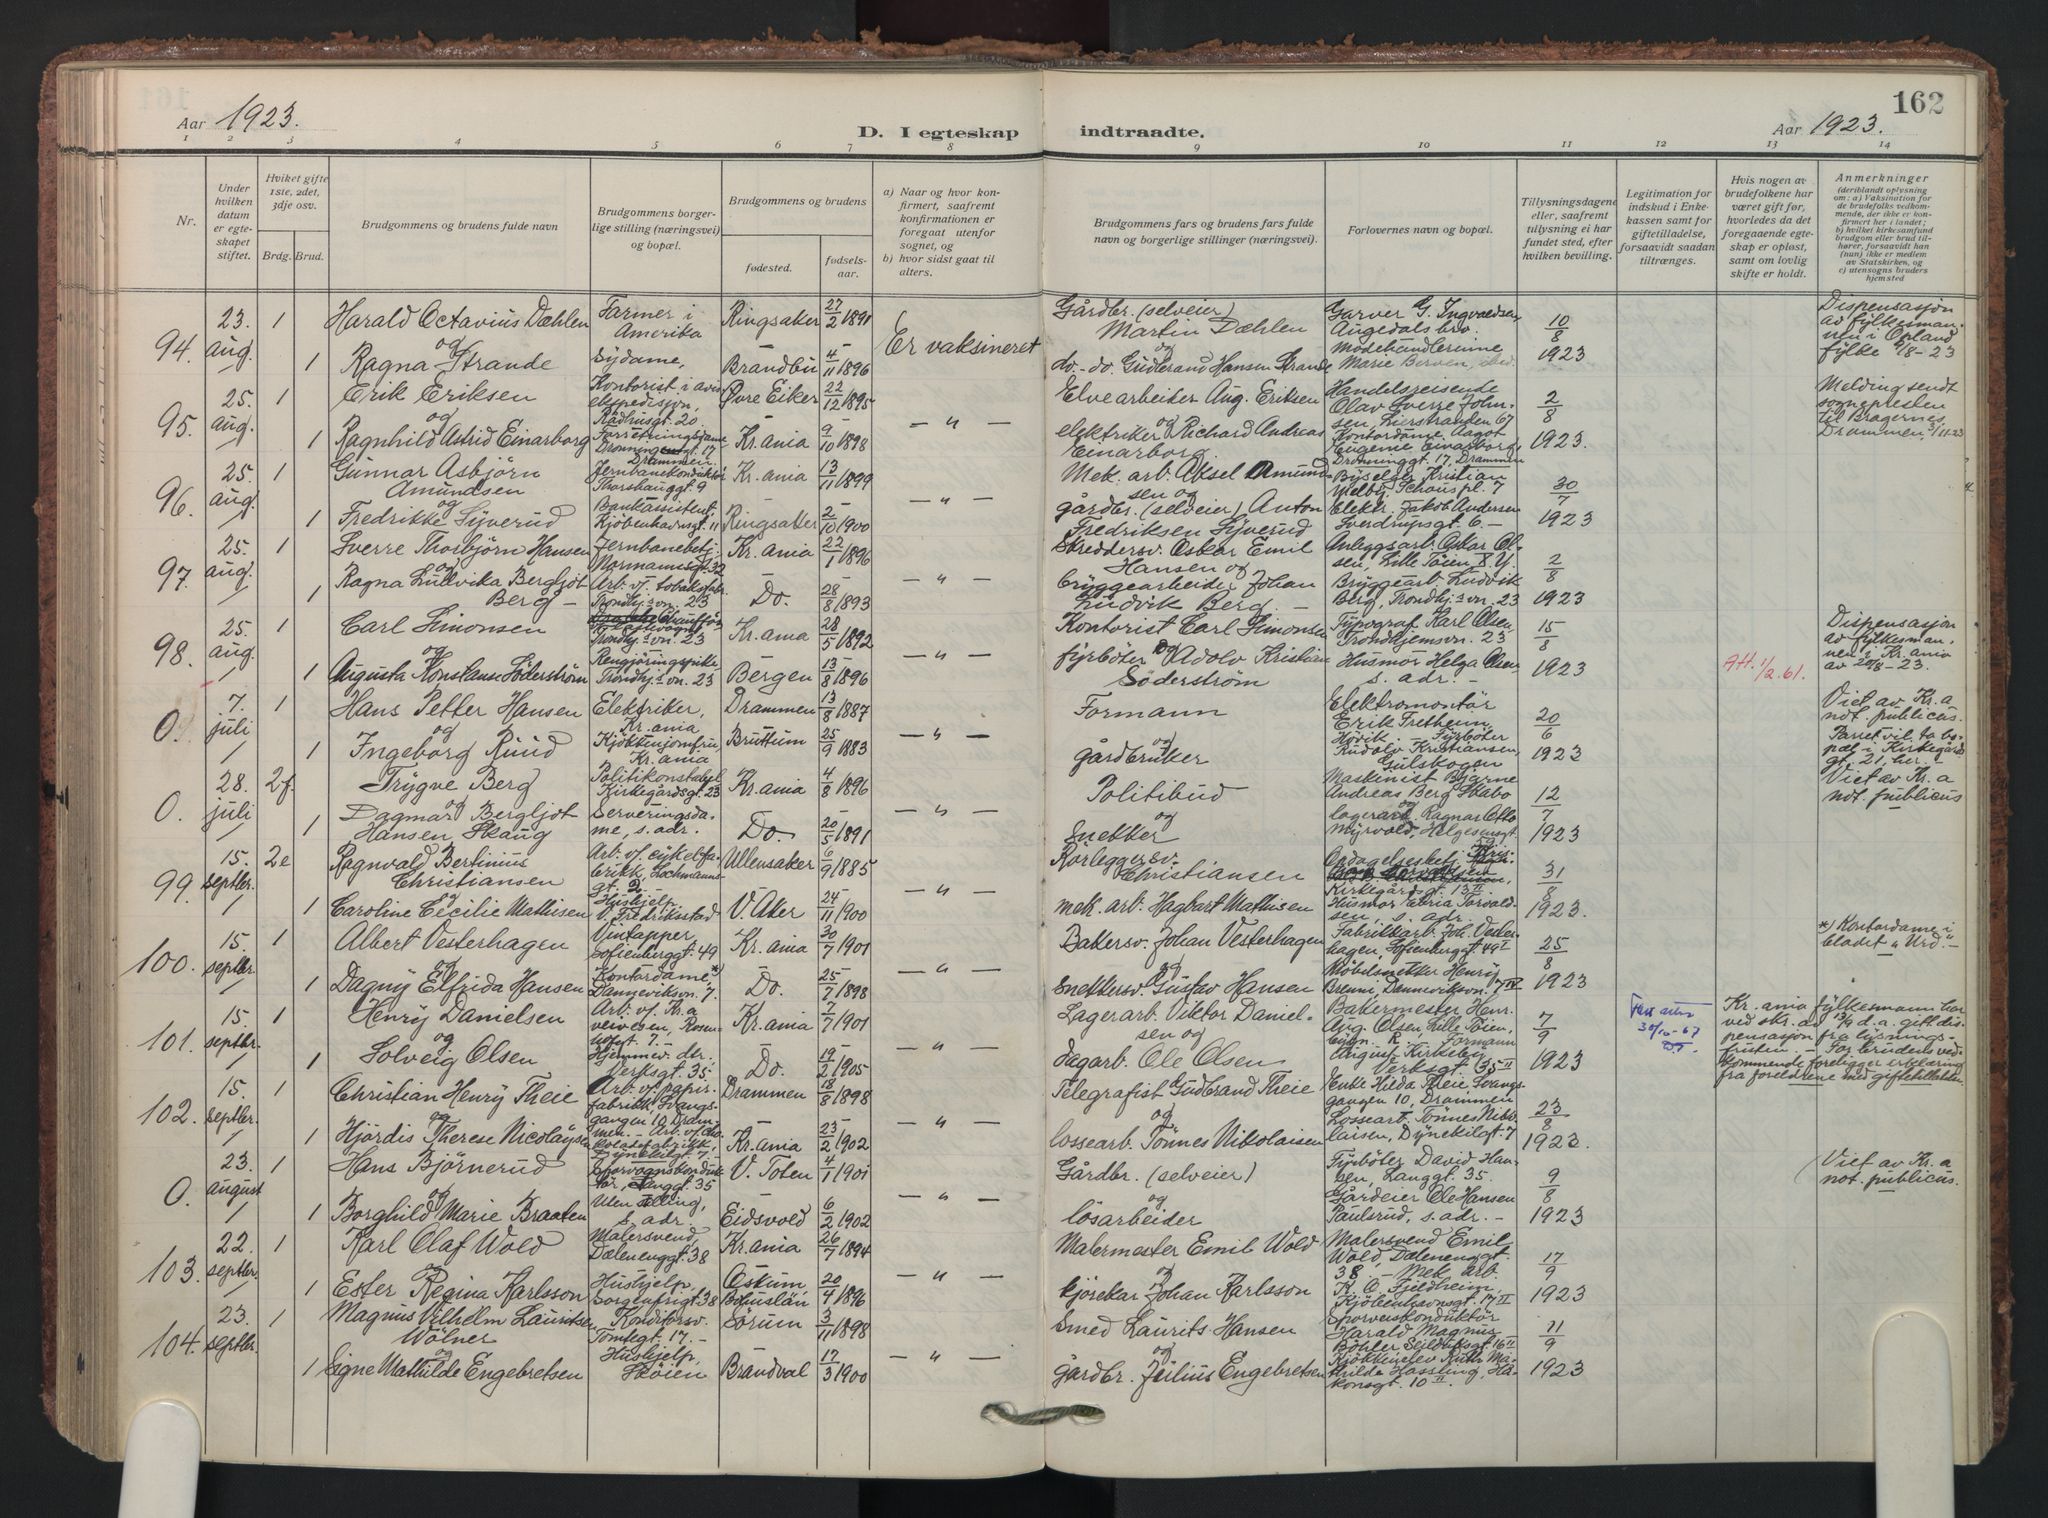 162
Aar 1923.
D. I egteskap indtraadte.
Aar 1923.
1 2 3 4 5 6 7 8 9 10 11 12 13 14
Nr.
Under hvilken datum er egteskapet stiftet.
Hvilket gifte 1ste, 2det, 3dje osv.
Brdg. Brud.
Brudgommens og brudens fulde navn
Brudgommens borgerlige stilling (næringsvei) og bopæl.
Brudgommens og brudens
fødested.
fødselsaar.
a) Naar og hvor konfirmert, saafremt konfirmationen er foregaat utenfor sognet, og
b) hvor sidst gaat til alters.
Brudgommens fars og brudens fars fulde navn og borgerlige stillinger (næringsvei).
Forlovernes navn og bopæl.
Tillysningsdagene eller, saafremt tillysning ei har fundet sted, efter hvilken bevilling.
Legitimation for indskud i Enkekassen samt for giftetilladelse, forsaavidt saadan tiltrænges.
Hvis nogen av brudefolkene har været gift før, hvorledes da det foregaaende egteskap er opløst, samt om lovlig skifte er holdt.
Anmerkninger
(deriblandt oplysning om: a) Vaksination for de brudefolks vedkommende, der ikke er konfirmert her i landet;
b) hvilket kirkesamfund brudgom eller brud tilhører, forsaavidt han (hun) ikke er medlem av Statskirken, og
c) utensogns bruders hjemsted
94. 23. aug. 1 Harald Octavius Dæhlen Farmer i Amerika Ringsaker 27/2 1891 Er vaksineret Gårdbr. (selveier) Martin Dæhlen Garver G. Ingvaldsen, Augedals bro. 10/8 1923 Dispensasjon av fylkesmannen i Opland fylke
og
1 Ragna Strande Sydame, Brandbu 4/11 1896 do.-do. Gudbrand Hansen Strande Modehandlerinne Marie Berven
95. 25. aug. 1 Erik Eriksen Kontorist i avisekspedisjon, Rådhusgt. 20 Øvre Eiker 22/12 1895 – " – Elvearbeider Aug. Eriksen Handelsreisende Olav Sverre Johnsen, Lierstranden 67 2/8 1923. Melding sendt sognepresten til Bragernes, Drammen,
og
1 Ragnhild Astrid Einarborg Forretningsdame Dronninggt. 17 Drammen Kr.ania 9/10 1898 elektriker Richard Andreas Einarborg Kontordame Aagot Eugenie Einarborg, Dronninggt. 17, Drammen
96. 25. aug. 1 Gunnar Asbjörn Amundsen Jernbanekonduktör Thorshauggt. 9 Kr.ania 13/11 1899 – " – Mek. arb. Aksel Amundsen og Kristian Melby, Schous pl. 7 30/7 1923
og
1 Fredrikke Syverud Bankassistent, Kjöbenhavnsgt. 11 Ringsaker 2/10 1900 gårdbr. (selveier) Anton Fredriksen Syverud Elektr. Jakob Andersen Sverdrupsgt. 6. –
97. 25. aug. 1 Sverre Thorbjörn Hansen Jernbanebetj. Normannsgt. 32 Kr.ania 22/1 1896 – " – Skreddersv. Oskar Emil Hansen og Anleggsarb. Oskar Olsen, Lille Töien 2/8 1923
og
1 Ragna Ludvika Bergljot Berg – Arb. v. tobaksfabr. Trondhj.s vn. 23 Do. 28/8 1893 bryggearbeider Johan Ludvik Berg. – Bryggearb. Ludvik Berg, Trondhj.s vn. 23
98. 25. aug. 1 Carl Simonsen Trondhj.s vn. 23 Kr.ania 28/5 1892 – " – Kontorist Carl Simonsen Typograf Karl Olsen, Trondhjemsvn. 23 15/8 1923 Att. 1/2.61. Dispensasjon av fylkesmannen i Kr.ania av 20/8–23.
og
1 Augusta Konstanse Söderström Rengjöringspike, Trondhj.s vn. 23 Bergen 13/8 1896 fyrböter Adolv Kristian Söderström Husmor Helga Olsen s. adr. –
0. 7. juli 1 Hans Petter Hansen Elektriker, Kr.ania Drammen 13/8 1887 – " – Formann Elektromontör Erik Fretheim, Hövik. – Fyrböter 20/6 1923 Viet av Kr.a not. publicus. Paret vil ta bopæl i Kirkegårdsgt. 21, her. –
og
1 Ingeborg Ruud Kjökkenjomfru, Kr.ania Bruttum 25/9 1883 gårdbruker Rudolv Kristiansen, Gulskogen
0. 28. juli 2f. Trygve Berg Politikonstabel Kirkegårdsgt. 23 Kr.ania 4/8 1896 – " – Politibud Maskinist Bjarne Andreas Berg Skabo 12/7 1923 Viet av Kr.a not. publicus
og
1 Dagmar Bergljot Hansen Skaug Serveringsdame, s. adr. Do. 20/5 1891 Snekker lagerarb. Ragnar Otto Myrvold, Helgesensgt.
99. 15. septbr. 2e Ragnvald Bertinius Christiansen Arb. v. cykelfabrikk, Lochmannsgt. 2. Ullensaker 6/9 1885 – " – Rörleggersv. Christiansen Kirkegårdsgt. 13 II 31/8 1923.
og
1 Caroline Cecilie Mathisen Hushjelp. V. Fredriksstad V. Aker 24/11 1900 mek. arb. Hagbart Mathisen Husmor Torvaldsen, s. adr.
100. 15. septbr. 1 Albert Vesterhagen Vintapper, Sofienberggt. 49 Kr.ania 30/7 1901 – " – Bakersv. Johan Vesterhagen Fabrikkarb. Joh. Vesterhagen, Sofienberggt. 49 I 25/8 1923 *) Kontordame i bladet „Urd". –
og
1 Dagny Elfrida Hansen Kontordame, *) Danneviksvn. 7. Do. 25/7 1898 Snekkersv. Gustav Hansen Möbelsnekker Henry Brenni, Danneviksvn. 7 IV
101. 15. septbr. 1 Henry Danielsen Arb. v. Kr.a Kr.ania 7/7 1901 – " – Lagerarb. Viktor Danielsen og Bakermester Henr. Aug. Olsen, Lille Töien, 7/9 1923 30/10–67 Kr.ania fylkesmann har ved skr. av 13/9 d.a. gitt dispensasjon fra lysningsfristen. – For brudens vedkommende foreligger erklæring fra foreldrene med giftetillatelse.
og
1 Solveig Olsen Hjemmev. dtr. Verksgt. 35 Do. 19/2 1905 dagarb. Ole Olsen Formann August Kirkeby Verksgt. 35 II
102. 15. septbr. 1 Christian Henry Theie Arb. v. papirfabrikk, Svangsgangen 10, Drammen. – Drammen 18/8 1898 – " – Telegrafist Gudbrand Theie Enke Hilda Theie Svangsgangen 10, Drammen 23/8 1923.
og
1 Hjördis Therese Nicolaysen Arb. v. chokoladefabrikk, Dynekilgt. 7. – Kr.ania 23/2 1902 lossearb. Tönnes Nikolaisen Lossearb. Tönnes Nikolaisen, Dynekilgt. 7
0. 23. august 1 Hans Björnerud Sporvognskonduktör, Langgt. 35 V. Toten 4/1 1901 – " – Gårdbr. (selveier) Fyrböter David Hansen, Langgt. 35. 9/8 1923 Viet av Kr.a not. publicus.
og
1 Borghild Marie Braaten Uten stilling, s. adr. Eidsvold 6/2 1902 lösarbeider Gårdeier Ole Hansen Paulsrud, s. adr. –
103. 22. septbr. 1 Karl Olaf Wold Malersvend, Dælenenggt. 38 Kr.ania 26/7 1894 – " – Malermester Emil Wold Malersvend Emil Wold, Dælenenggt. 38. – Mek. arb. 17/9 1923
og
1 Ester Regina Karlsson Hushjelp, Sorgenfrigt. 38 Oskum, Bohuslän 20/4 1896 kjörekar Johan Karlsson K. O. Fjeldheim, Kjöbenhavnsgt. 17 II
104. 23. septbr. 1 Magnus Vilhelm Lauritsen Wölner Konditorsv. Tömtegt. 17. – Sörum 3/11 1898 – " – Smed Laurits Hansen Sporveiskonduktör Harald Magnus Böhler, Seilduksgt. 16 II 11/9 1923
og
1 Signe Mathilde Engebretsen Hushjelp, Sköien Brandval 17/3 1900 gårdbr. Julius Engebretsen Kjökkenelev Ruth Mathilde Hassling, Håkonsgt. 10 II.